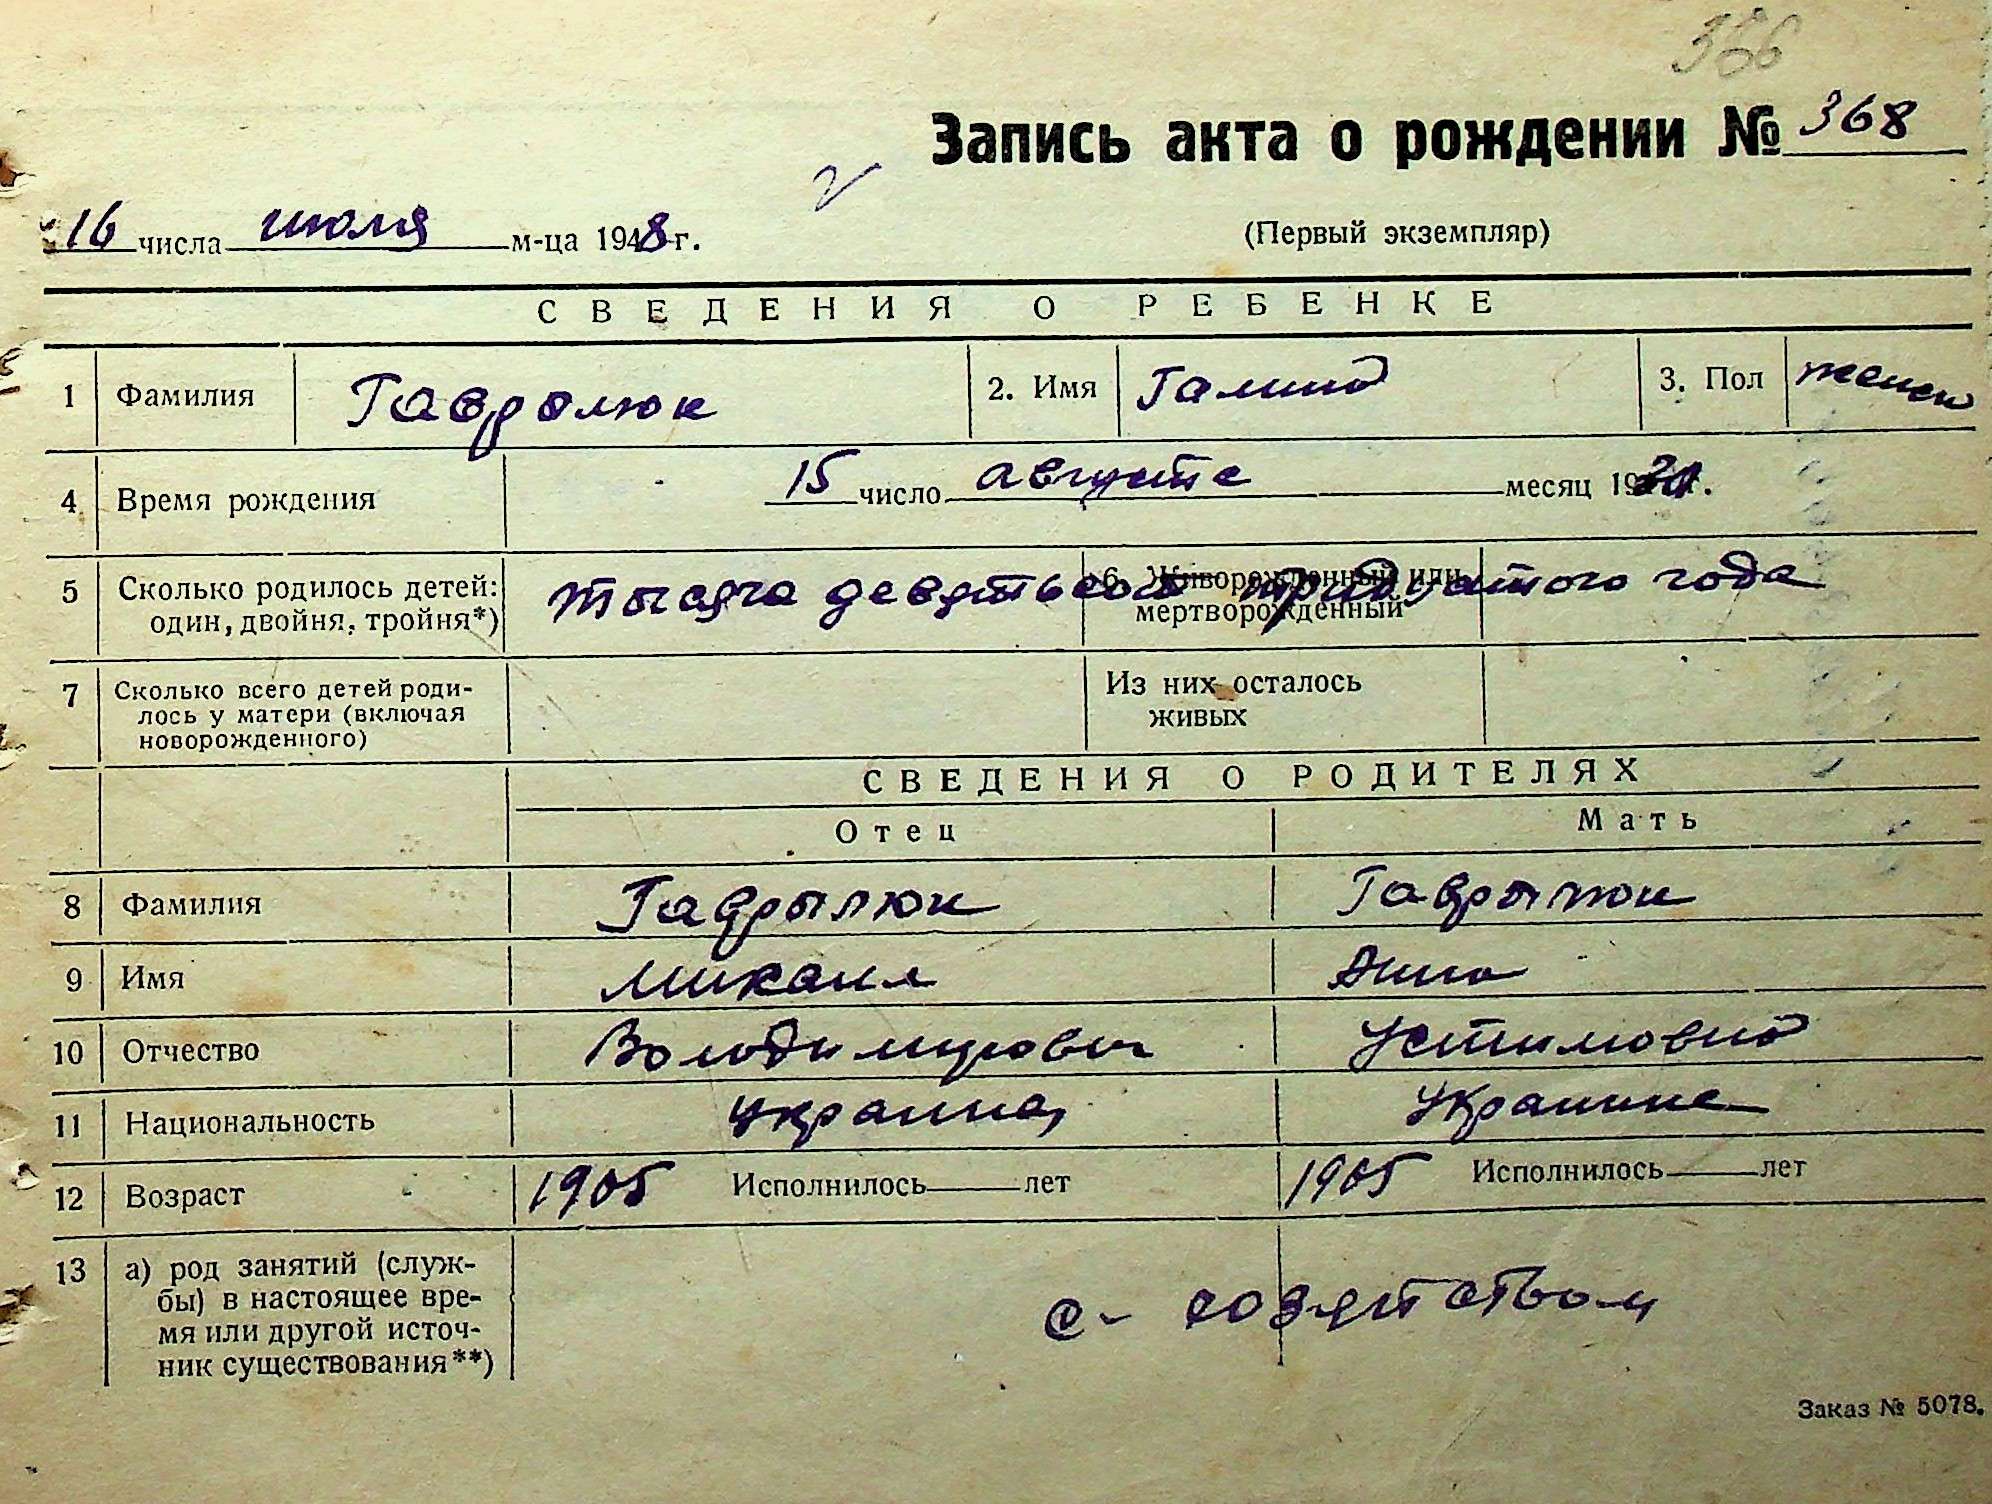 366
Запись акта о рождении № 368
16 числа июля м-ца 1948 г.
(Первый экземпляр)
СВЕДЕНИЯ О РЕБЕНКЕ
1 Фамилия Гаврылюк 2. Имя Галина 3. Пол женск
4 Время рождения 15 число августа месяц 1930 г.
5 Сколько родилось детей: 6. Живорожденный или
один, двойня, тройня*) мертворожденный
тысяча девятьсот тридцатого года
7 Сколько всего детей роди- Из них осталось
лось у матери (включая живых
новорожденного)
СВЕДЕНИЯ О РОДИТЕЛЯХ
Отец Мать
8 Фамилия Гаврылюк Гаврылюк
9 Имя Михаил Анна
10 Отчество Володимирович Устимовна
11 Национальность украинец Украинка
12 Возраст 1905 Исполнилось лет 1905 Исполнилось лет
13 а) род занятий (служ-
бы) в настоящее вре-
мя или другой источ-
ник существования**)
с-хозяйством
Заказ № 5078.